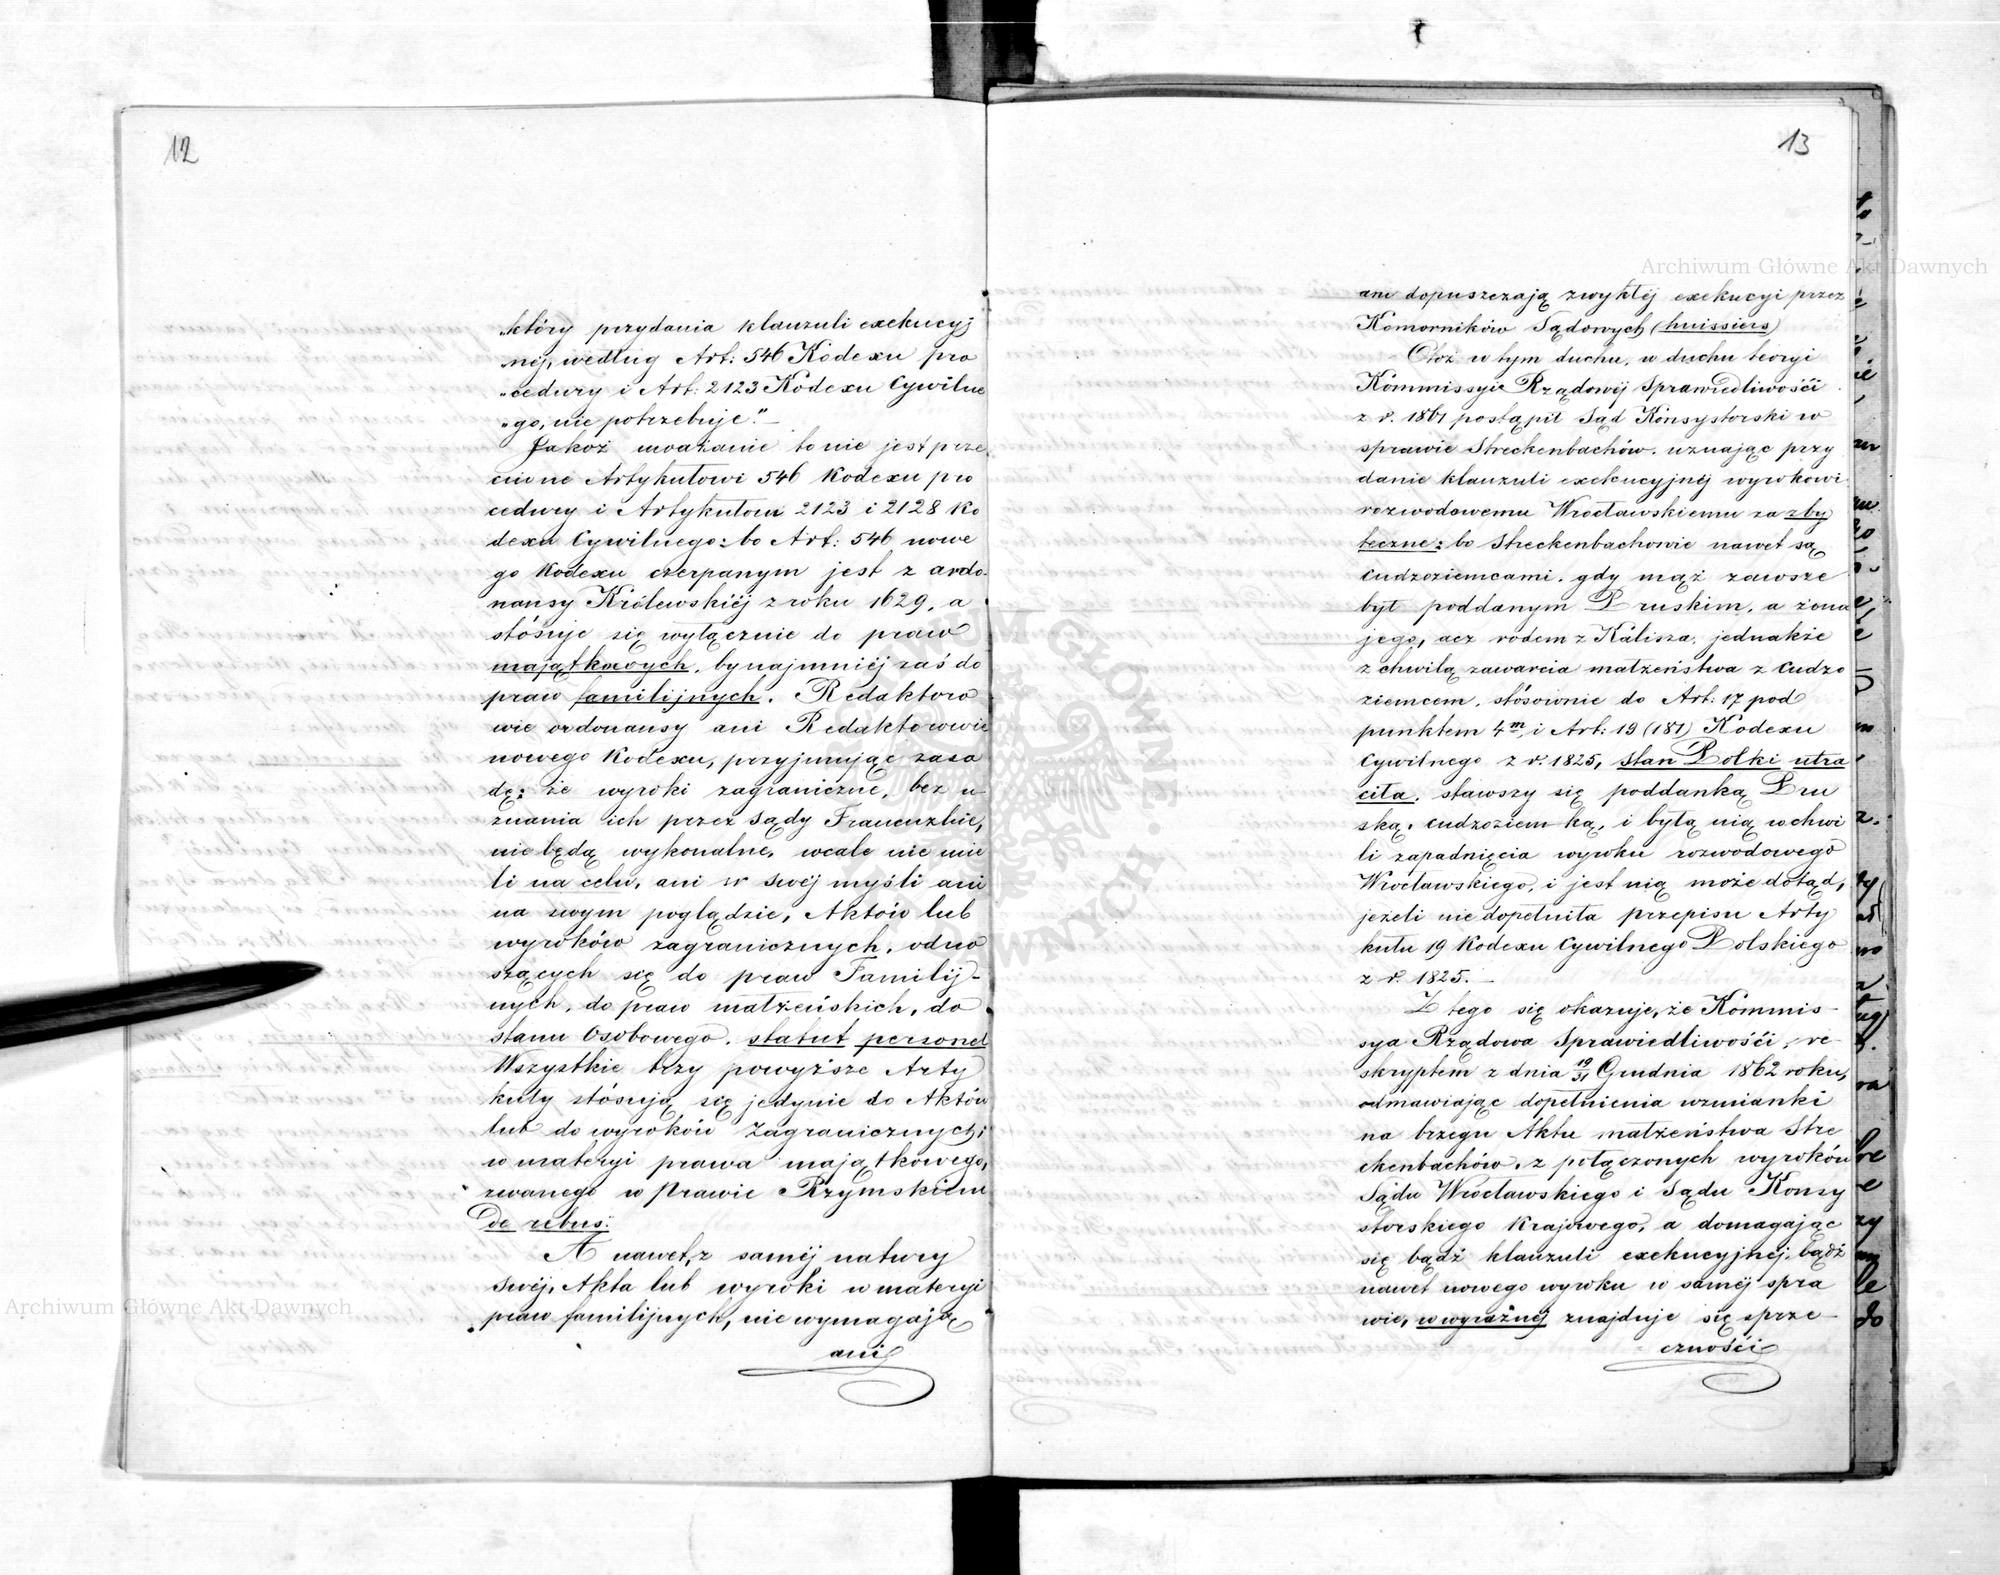 12
„który przydania klauzuli exekucyj
„nej, według Art: 546 Kodexu pro
„cedury i Art: 2123 Kodexu Cywilne
„go, nie potrzebuje".—
Jakoż uważanie to nie jest prze
ciwne Artykułowi 546 Kodexu pro
cedury i Artykułom 2123 i 2128 Ko
dexu Cywilnego: bo Art: 546 nowe
go Kodexu czerpanym jest z ordo-
nansy Królewskiéj z roku 1629, a
stósuje się wyłącznie do praw
majątkowych, bynajmniéj zaś do
praw familijnych. Redaktoro
wie ordonansy ani Redaktorowie
nowego Kodexu, przyjmując zasa
dę: że wyroki zagraniczne, bez u
znania ich przez Sądy Francuzkie,
nie będą wykonalne, wcale nie mie
li na celu, ani w swéj myśli ani
na swym poglądzie, Aktów lub
wyroków zagranicznych, odno
szących się do praw Familij-
nych, do praw małżeńskich, do
stanu Osobowego, statut personel
Wszystkie trzy powyższe Arty
kuły stósują się jedynie do Aktów
lub do wyroków Zagranicznych;
w materyi prawa majątkowego,
zwanego w Prawie Rzymskiem
de rebus:
A nawet, z saméj natury
swéj, Akta lub wyroki w materyi
praw familijnych, nie wymagają
ani
13
ani dopuszczają zwykłéj exekucyi przez
Komorników Sądowych (huissiers)
Otoż w tym duchu, w duchu teoryi
Kommissyi Rządowéj Sprawiedliwośći
z r. 1861 postąpił Sąd Konsystorski w
sprawie Streckenbachów, uznając przy
danie klauzuli exekucyjnéj wyrokowi
rozwodowemu Wrocławskiemu za zby
teczne: bo Streckenbachowie nawet są
cudzoziemcami, gdy mąż zawsze
był poddanym Pruskim, a żona
jego, acz rodem z Kalisza, jednakże
z chwilą zawarcia małżeństwa z Cudzo
ziemcem, stósownie do Art: 17 pod
punktem 4m i Art: 19 (181) Kodexu
Cywilnego z r. 1825, stan Polki utra
ciła, stawszy się poddanką Pru
ską, cudzoziemką, i była nią w chwi
li zapadnięcia wyroku rozwodowego
Wrocławskiego, i jest nią może dotąd,
jeżeli nie dopełniła przepisu Arty
kułu 19 Kodexu Cywilnego Polskiego
z r. 1825.—
Z tego się okazuje, że Kommis-
sya Rządowa Sprawiedliwośći, re-
skryptem z dnia 19/31 Grudnia 1862 roku,
odmawiając dopełnienia wzmianki
na brzegu Aktu małżeństwa Stre
ckenbachów, z połączonych wyroków
Sądu Wrocławskiego i Sądu Konsy
storskiego Krajowego, a domagając
się bądź klauzuli exekucyjnéj, bądź
nawet nowego wyroku w saméj spra
wie, w wyraźnéj znajduje się sprze-
cznośći
Archiwum Główne Akt Dawnych
Archiwum Główne Akt Dawnych